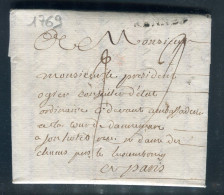 1769
RENNES
A Monsieur
Monsieur le president
ogier conseiller d'état
ordinaire cy devant ambassadeur
a la cour de dannemarc
a son hotel rue notre dame des
champs pres le luxembourg
a paris